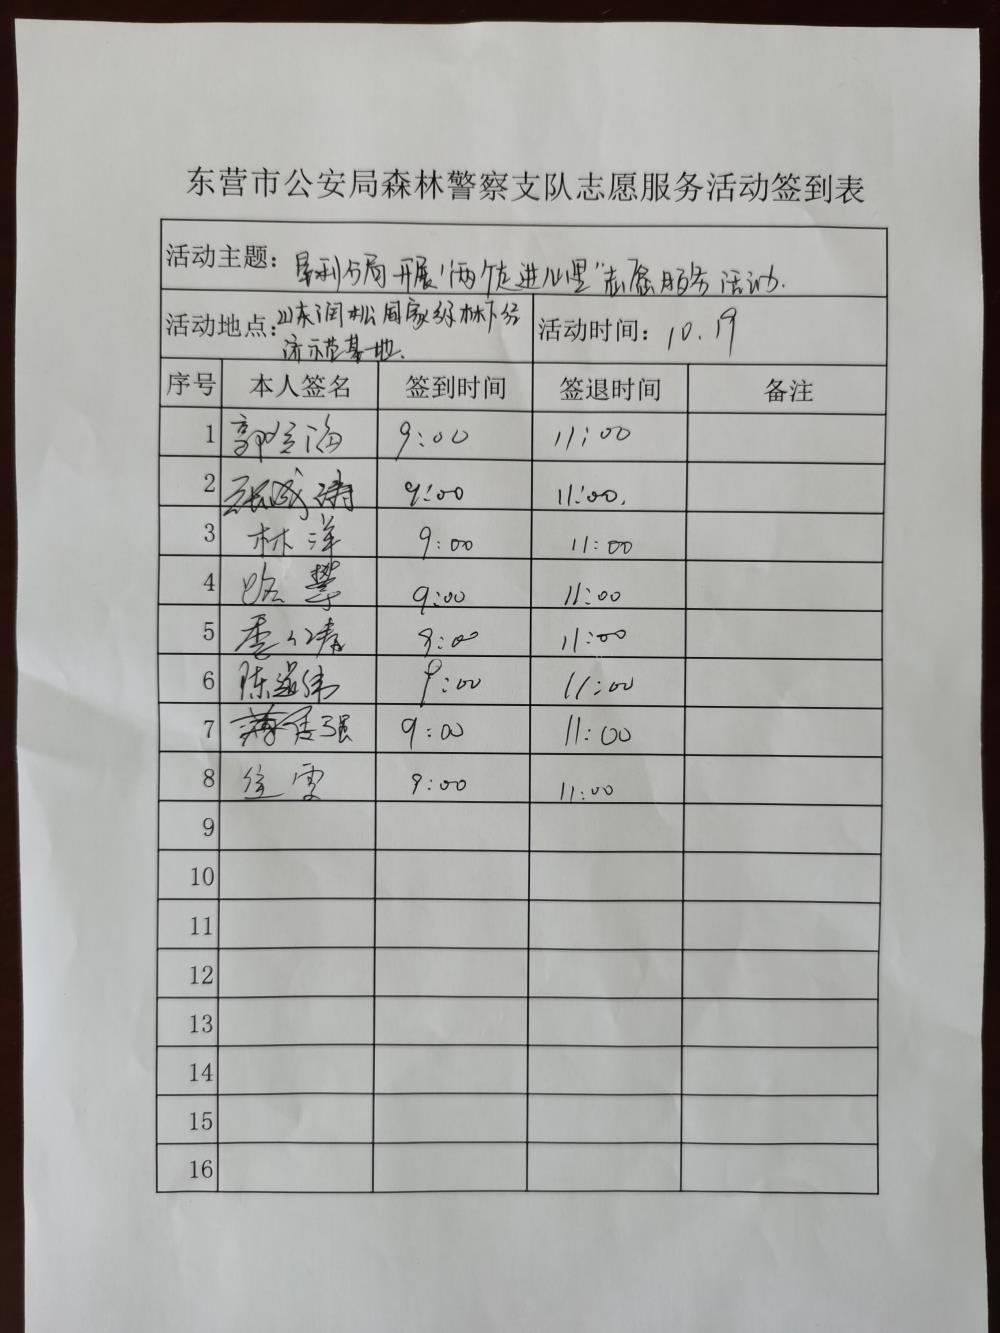 东营市公安局森林警察支队志愿服务活动签到表
活动主题：垦利分局开展“两个走进心里”志愿服务活动.
活动地点：山东润松国家级林下经 活动时间：10.19
济示范基地.
序号 本人签名 签到时间 签退时间 备注
1 海 9:00 11:00
2 张成涛 9:00 11:00.
3 林洋 9:00 11:00
4 9:00 11:00
5 9:00 11:00
6 陈 伟 9:00 11:00
7 薄 强 9:00 11:00
8 雯 9:00 11:00
9
10
11
12
13
14
15
16